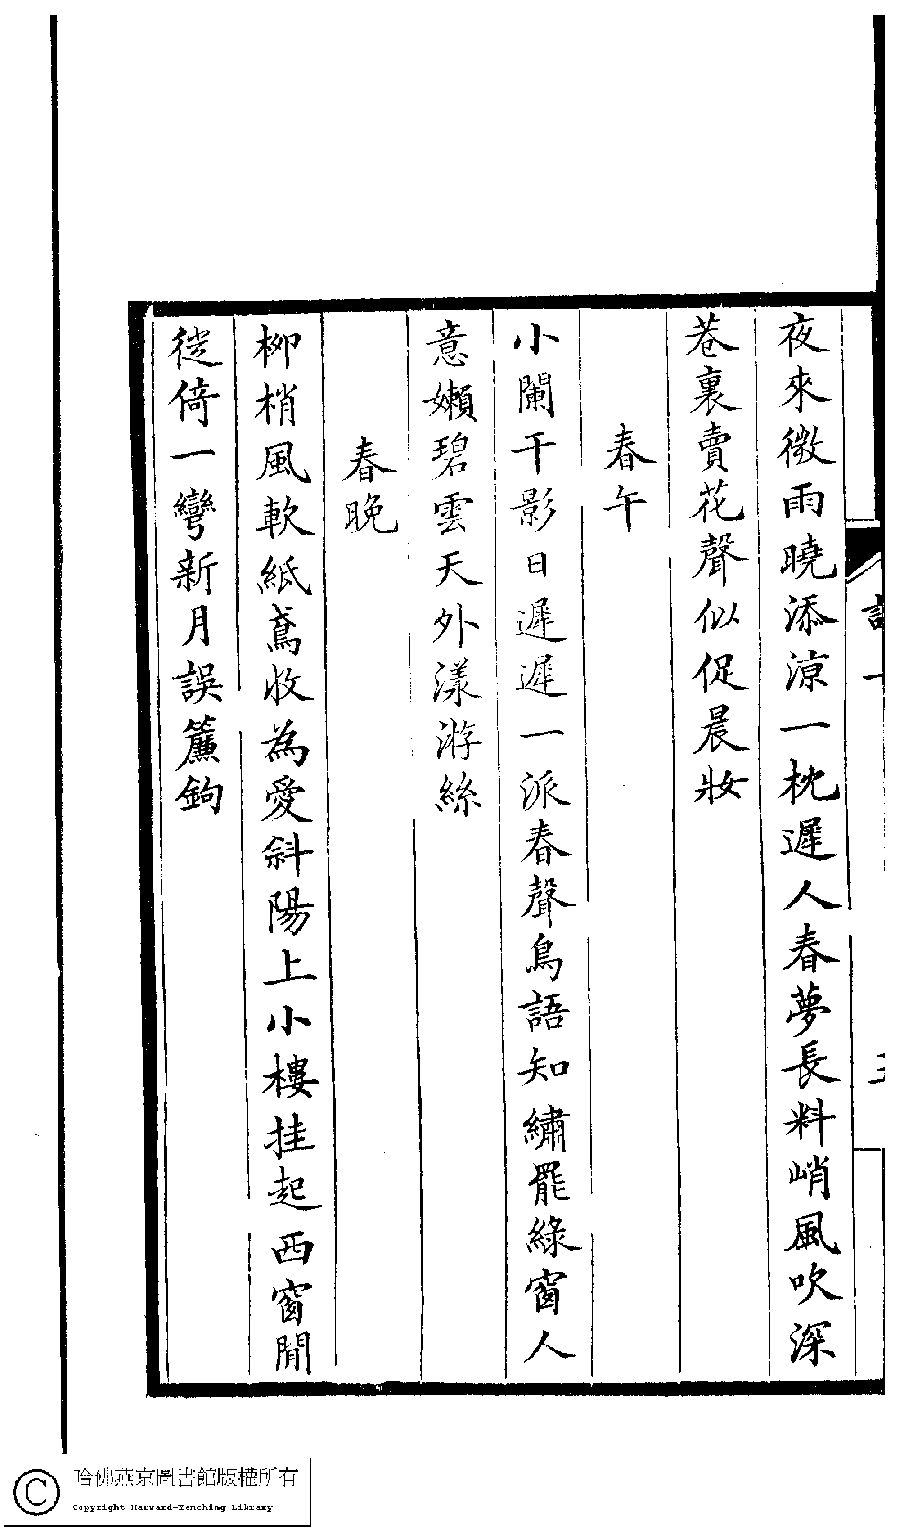 夜來微雨曉添涼一枕遲人春夢長料峭風吹深
巷裏賣花聲似促晨妝
春午
小闌干影日遲遲一派春聲鳥語知繡罷綠窗人
意嬾碧雲天外漾游絲
春晚
柳梢風軟紙鳶收為愛斜陽上小樓挂起西窗閒
徙倚一彎新月誤簾鉤
哈佛燕京圖書館版權所有
Copyright Harvard-Yenching Library